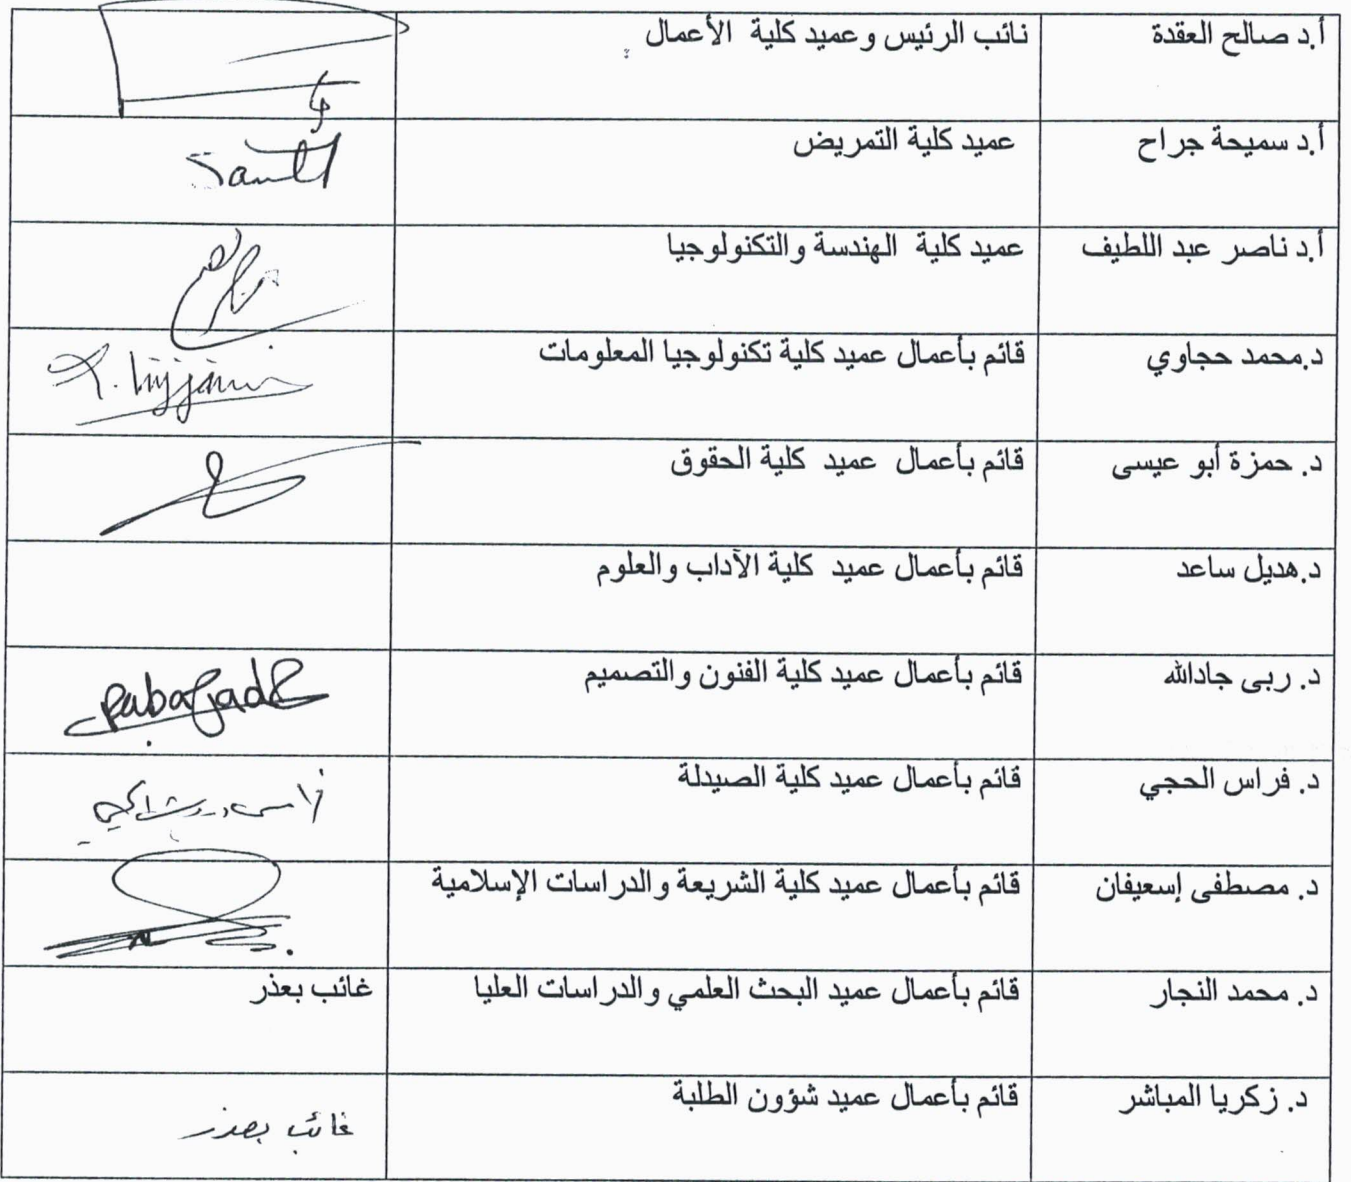 أ.د صالح العقدة نائب الرئيس وعميد كلية الأعمال
أ.د سميحة جراح عميد كلية التمريض
أ.د ناصر عبد اللطيف عميد كلية الهندسة والتكنولوجيا
د.محمد حجاوي قائم بأعمال عميد كلية تكنولوجيا المعلومات
د. حمزة أبو عيسى قائم بأعمال عميد كلية الحقوق
د.هديل ساعد قائم بأعمال عميد كلية الآداب والعلوم
د. ربى جادالله قائم بأعمال عميد كلية الفنون والتصميم
د. فراس الحجي قائم بأعمال عميد كلية الصيدلة
د. مصطفى إسعيفان قائم بأعمال عميد كلية الشريعة والدراسات الإسلامية
د. محمد النجار قائم بأعمال عميد البحث العلمي والدراسات العليا غائب بعذر
د. زكريا المباشر قائم بأعمال عميد شؤون الطلبة غائب بعذر